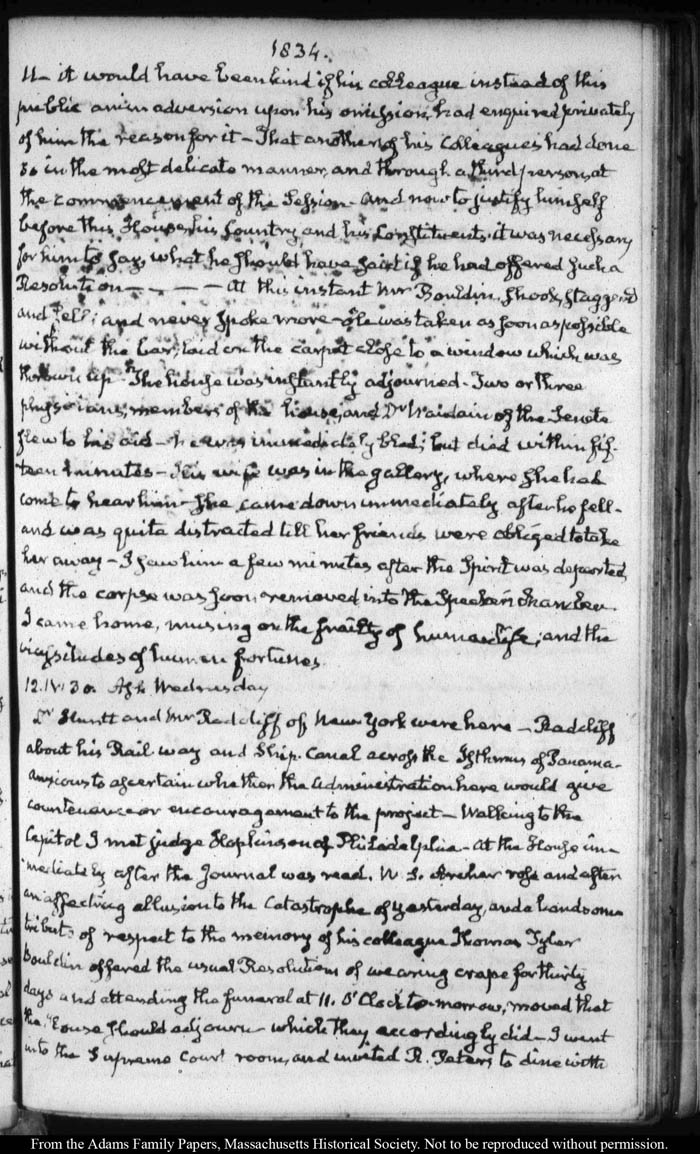 1834.
it would have been kind if his colleague instead of this
public animadversion upon his omission, had enquired privately
of him the reason for it – That another of his Colleagues had done
so in the most delicate manner, and through a third person, at
the commencement of the Session – And now to justify himself
before this House, his Country, and his Constituents, it was necessary
for him to say, what he should have said if he had offered such a
Resolution – – – – At this instant Mr Bouldin, shook, staggered
and fell; and never spoke more – He was taken as soon as possible
without the bar, laid on the carpet close to a window which was
thrown up. The house was instantly adjourned. Two or three
physicians, members of the house, and Dr Naudain of the Senate
flew to his aid – he was immediately bled; but died within fif-
teen minutes – His wife was in the gallery, where she had
come to hear him – She came down immediately after he fell –
and was quite distracted till her friends were obliged to take
her away – I saw him a few minutes after the Spirit was departed,
and the corpse was soon removed into the Speaker's chamber.
I came home, musing on the frailty of human life, and the
vicissitudes of human fortunes.
12. IV: 30. Ash Wednesday
Dr Huntt and Mr Radcliff of New York were here – Radcliff
about his Rail way and Ship-Canal across the Isthmus of Panama –
Anxious to ascertain whether the Administration here would give
countenance or encouragement to the project – Walking to the
Capitol I met judge Hopkinson of Philadelphia – At the House im-
mediately after the Journal was read, W. S. Archer rose and after
an affecting allusion to the Catastrophe of yesterday, and a handsome
tribute of respect to the memory of his colleague Thomas Tyler
Bouldin offered the usual Resolutions of wearing crape for thirty
days and attending the funeral at 11. O'Clock to-morrow, moved that
the House should adjourn – which they accordingly did – I went
into the Supreme Court room, and invited R. Peters to dine with
From the Adams Family Papers, Massachusetts Historical Society. Not to be reproduced without permission.